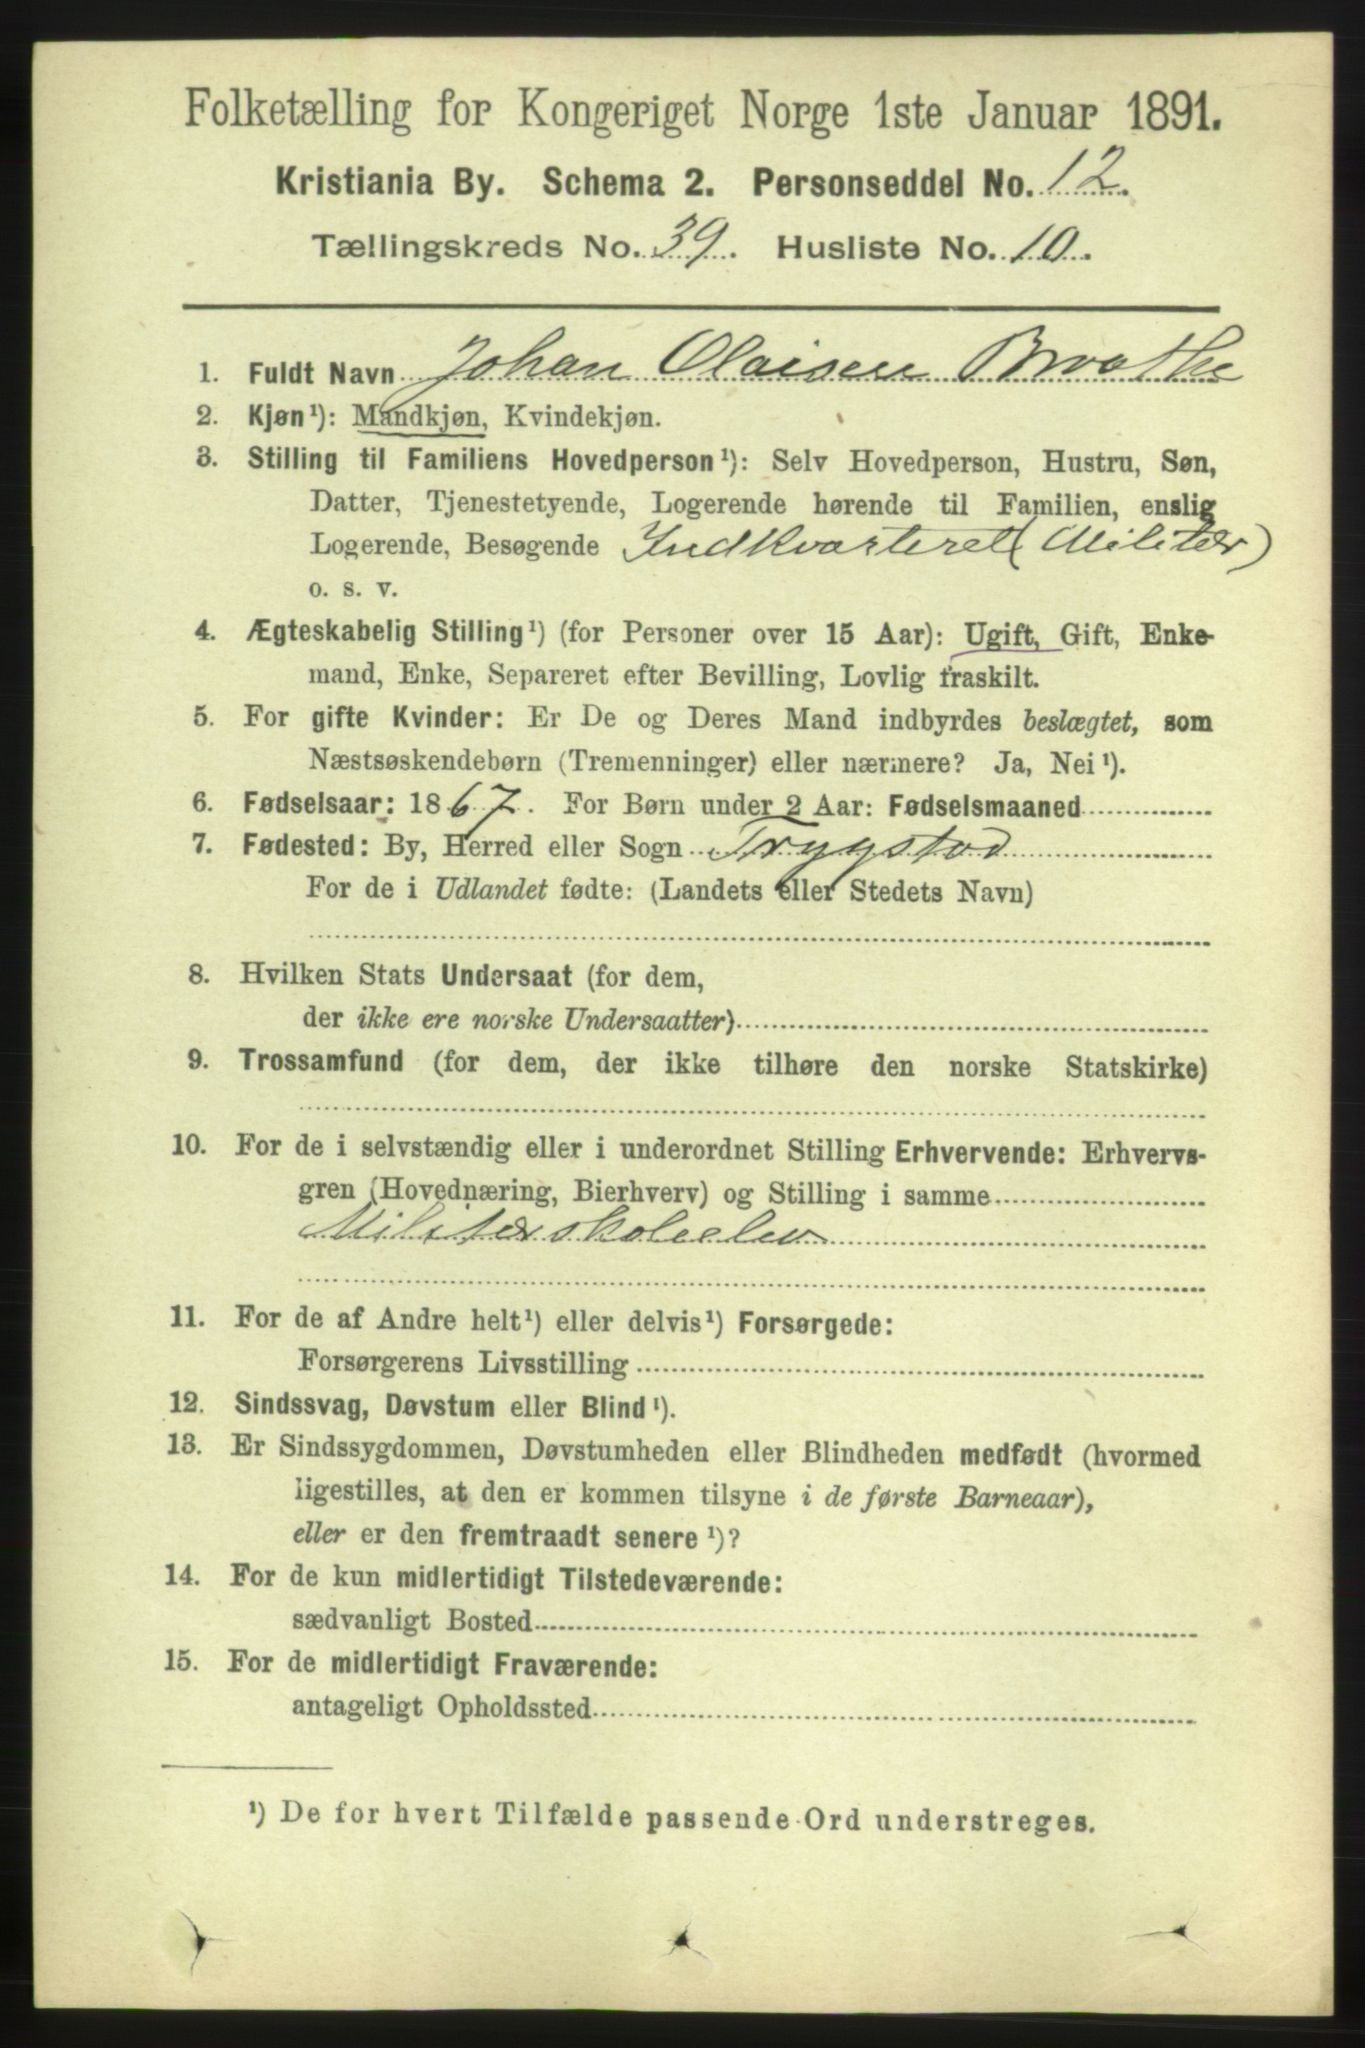 Folketælling for Kongeriget Norge 1ste Januar 1891.
Kristiania By. Schema 2. Personseddel No. 12.
Tællingskreds No. 39. Husliste No. 10.
1. Fuldt Navn Johan Olaisen Brathe
2. Kjøn¹): Mandkjøn, Kvindekjøn.
3. Stilling til Familiens Hovedperson¹): Selv Hovedperson, Hustru, Søn,
Datter, Tjenestetyende, Logerende hørende til Familien, enslig
Logerende, Besøgende Indkvarteret (Militær)
o. s. v.
4. Ægteskabelig Stilling¹) (for Personer over 15 Aar): Ugift, Gift, Enke-
mand, Enke, Separeret efter Bevilling, Lovlig fraskilt.
5. For gifte Kvinder: Er De og Deres Mand indbyrdes beslægtet, som
Næstsøskendebørn (Tremenninger) eller nærmere? Ja, Nei¹).
6. Fødselsaar: 1867. For Børn under 2 Aar: Fødselsmaaned
7. Fødested: By, Herred eller Sogn Trygstad
For de i Udlandet fødte: (Landets eller Stedets Navn)
8. Hvilken Stats Undersaat (for dem,
der ikke ere norske Undersaatter)
9. Trossamfund (for dem, der ikke tilhøre den norske Statskirke)
10. For de i selvstændig eller i underordnet Stilling Erhvervende: Erhvervs-
gren (Hovednæring, Bierhverv) og Stilling i samme
Militærskoleelev
11. For de af Andre helt¹) eller delvis¹) Forsørgede:
Forsørgerens Livsstilling
12. Sindssvag, Døvstum eller Blind¹).
13. Er Sindssygdommen, Døvstumheden eller Blindheden medfødt (hvormed
ligestilles, at den er kommen tilsyne i de første Barneaar),
eller er den fremtraadt senere¹)?
14. For de kun midlertidigt Tilstedeværende:
sædvanligt Bosted
15. For de midlertidigt Fraværende:
antageligt Opholdssted
¹) De for hvert Tilfælde passende Ord understreges.